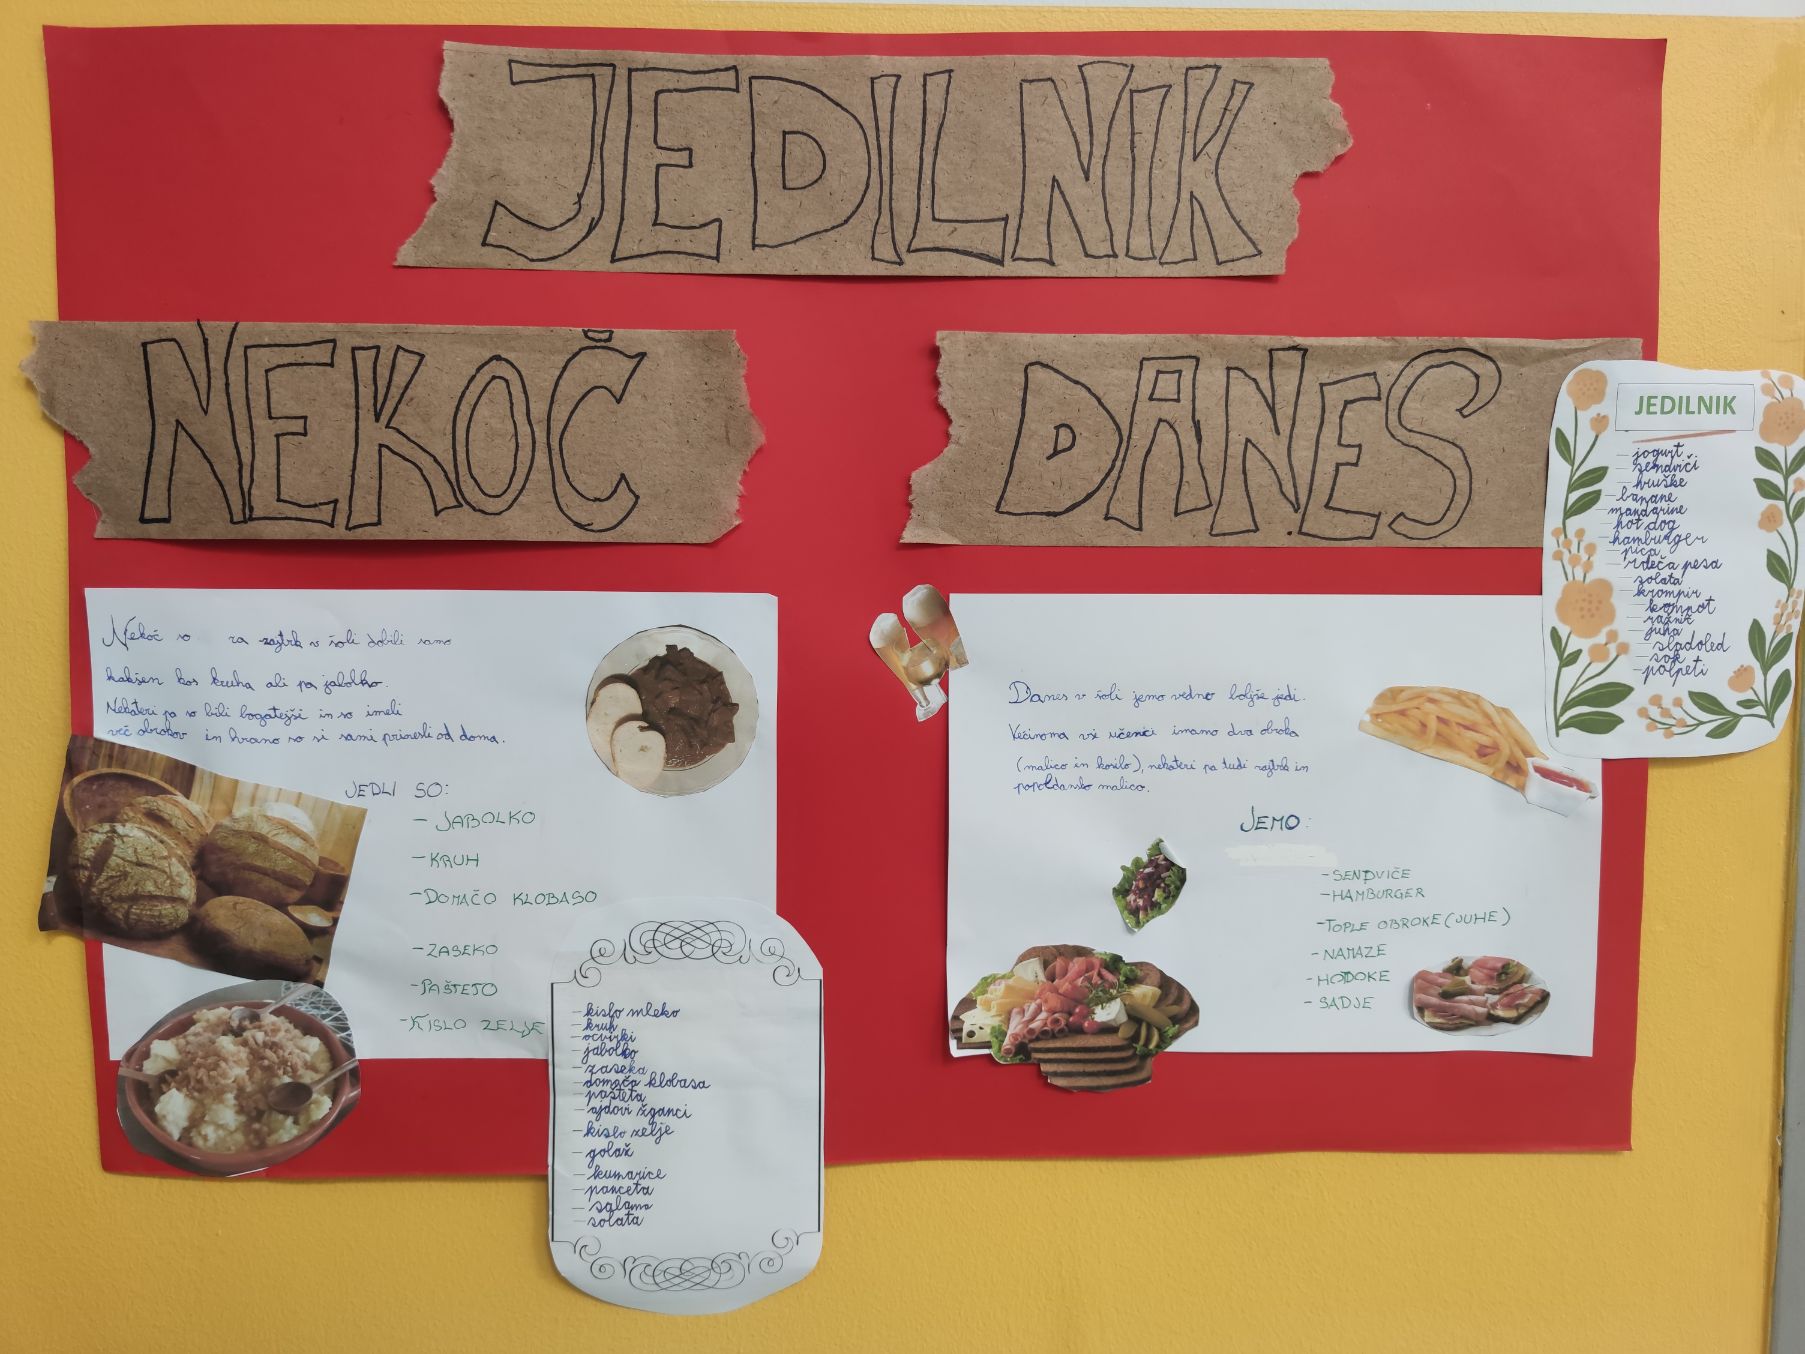 JEDILNIK
NEKOČ
Nekoč so za zajtrk v šoli dobili samo
kakšen kos kruha ali pa jabolko.
Nekateri pa so bili bogatejši in so imeli
več obrokov in hrano so si sami prinesli od doma.
JEDLI SO:
- JABOLKO
- KRUH
- DOMAČO KLOBASO
- ZASEKO
- PAŠTETO
- KISLO ZELJE
- kislo mleko
- kruh
- ocvirki
- jabolko
- zaseka
- domača klobasa
- pašteta
- ajdovi žganci
- kislo zelje
- golaž
- kumarice
- panceta
- salama
- solata
DANES
Danes v šoli jemo vedno boljše jedi.
Večinoma vsi učenci imamo dva obroka
(malico in kosilo), nekateri pa tudi zajtrk in
popoldansko malico.
JEMO:
- SENDVIČE
- HAMBURGER
- TOPLE OBROKE (JUHE)
- NAMAZE
- HODOKE
- SADJE
JEDILNIK
- jogurt
- sendviči
- hruške
- banane
- mandarine
- hot dog
- hamburger
- pica
- rdeča pesa
- solata
- krompir
- kompot
- juha
- sladoled
- sok
- polpeti